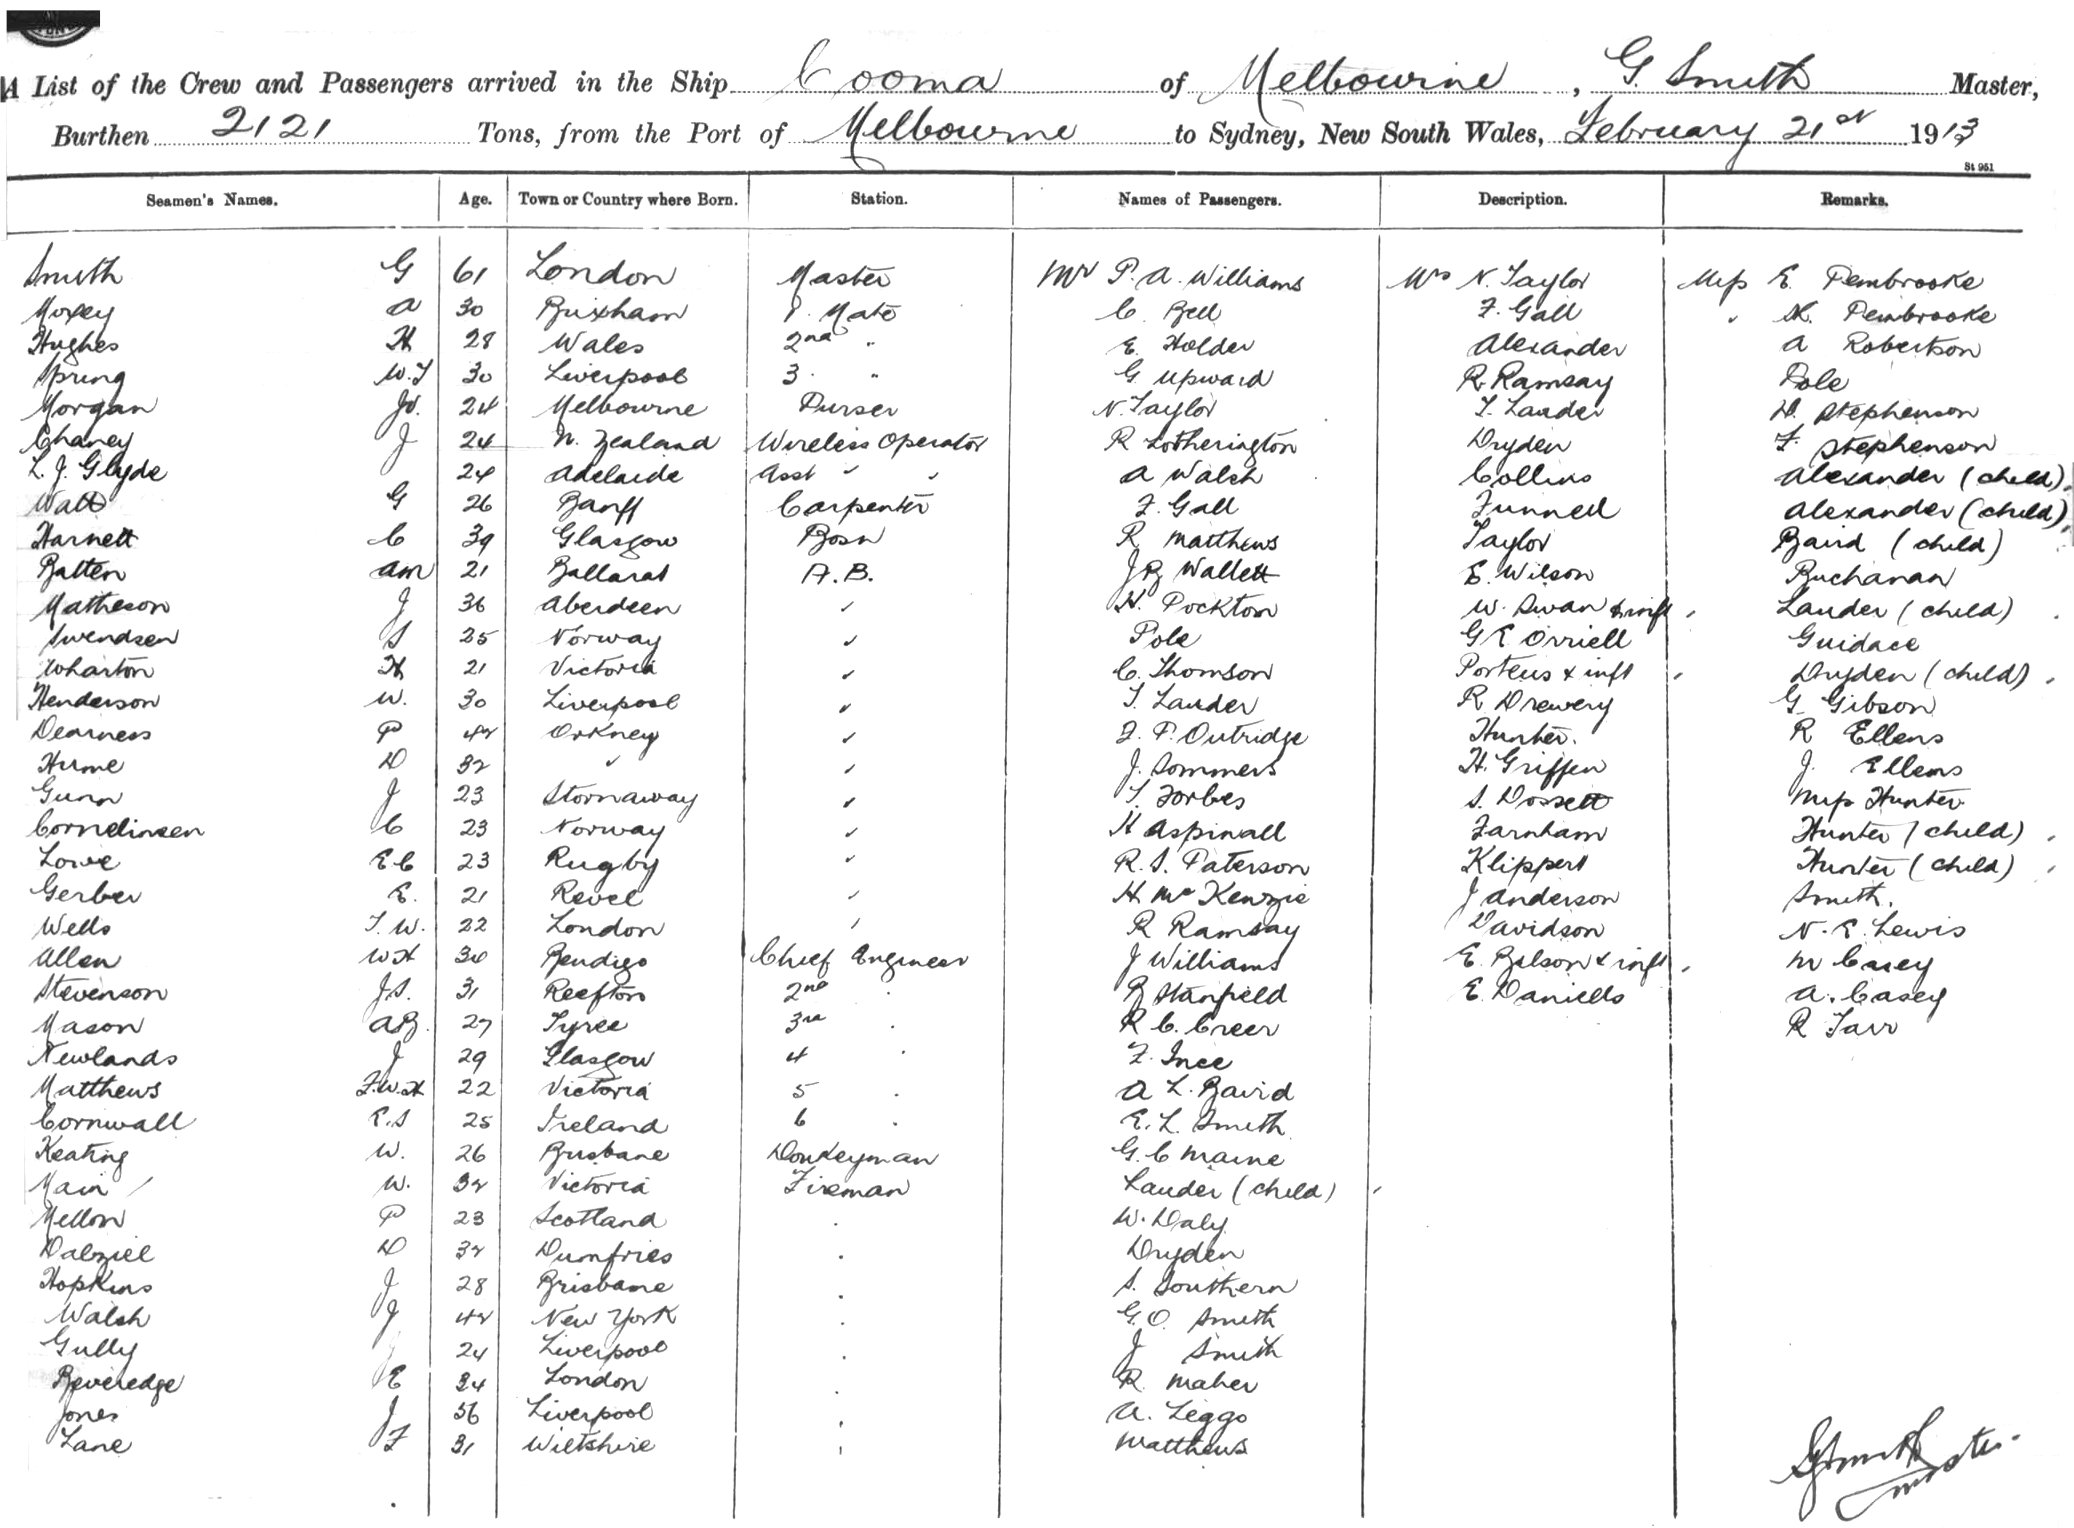 A List of the Crew and Passengers arrived in the Ship Cooma of Melbourne, G. Smith Master,
Burthen 2121 Tons, from the Port of Melbourne to Sydney, New South Wales, February 21st 1913
St 951
Seamen's Names. Age. Town or Country where Born. Station. Names of Passengers. Description. Remarks.
Smith G 61 London Master Mr P. A. Williams Mrs N. Taylor Miss E. Pembrooke
Moxey A 30 Brixham 1. Mate C. Bell F. Gall " H. Pembrooke
Hughes H 28 Wales 2nd " E. Holder Alexander A Robertson
Spring W.T 30 Liverpool 3. " G Upward R. Ramsay Pole
Morgan Jr. 24 Melbourne Purser N. Taylor T. Lauder D. Stephenson
Chaney J 24 N. Zealand Wireless Operator R Lotherington Dryden F. Stephenson
L. J. Glyde 24 Adelaide Asst " " A Walsh Collins Alexander (child)
Watt G 26 Banff Carpenter F. Gall Funnell Alexander (child)
Harnett C 39 Glasgow Bosn R Matthews Taylor Baird (child)
Batten AM 21 Ballarat A.B. J B Wallett E. Wilson Buchanan
Matheson J 36 Aberdeen " H. Pockton W. Swan & inft Lauder (child)
Swendsen S 25 Norway " Pole G E Orriell Guidace
Wharton H 21 Victoria " C. Thomson Porteus & inft Dryden (child)
Henderson W. 30 Liverpool " T. Lauder R Drewery G. Gibson
Dearness P 42 Orkney " F. P. Outridge Hunter. R Ellens
Hume D 32 " " J. Sommers H. Griffen J. Ellems
Gunn J 23 Stornaway " T. Forbes S. Dossett Miss Hunter
Cornelinsen C 23 Norway " H Aspinall Farnham Hunter (child)
Lowe E C 23 Rugby " R. S. Paterson Klippert Hunter (child)
Gerber E. 21 Revel " H McKenzie J Anderson Smith.
Wells T. W. 22 London " R Ramsay Davidson N. E. Lewis
Allen W H 30 Bendigo Chief Engineer J Williams E. Belson & inft M Casey
Stevenson J.S. 31 Reefton 2nd " B Stanfield E. Daniells A. Casey
Mason A B. 27 Tyree 3rd " R C. Creer R Tarr
Newlands J 29 Glasgow 4 " F. Ince
Matthews F.W.H 22 Victoria 5 " A L. Baird
Cornwall E.S 25 Ireland 6 " E. L. Smith
Keating W. 26 Brisbane Donkeyman G. C Maine
Main W. 32 Victoria Fireman Lauder (child)
Mellon P 23 Scotland " W. Daly
Dalziel D 32 Dumfries " Dryden
Hopkins J 28 Brisbane " S. Southern
Walsh J 42 New York " G. O. Smith
Gully J 24 Liverpool " J Smith
Beveredge E 34 London " R. Maher
Jones J 36 Liverpool " A. Leggo
Lane F 31 Wiltshire " Matthews
G Smith
Master